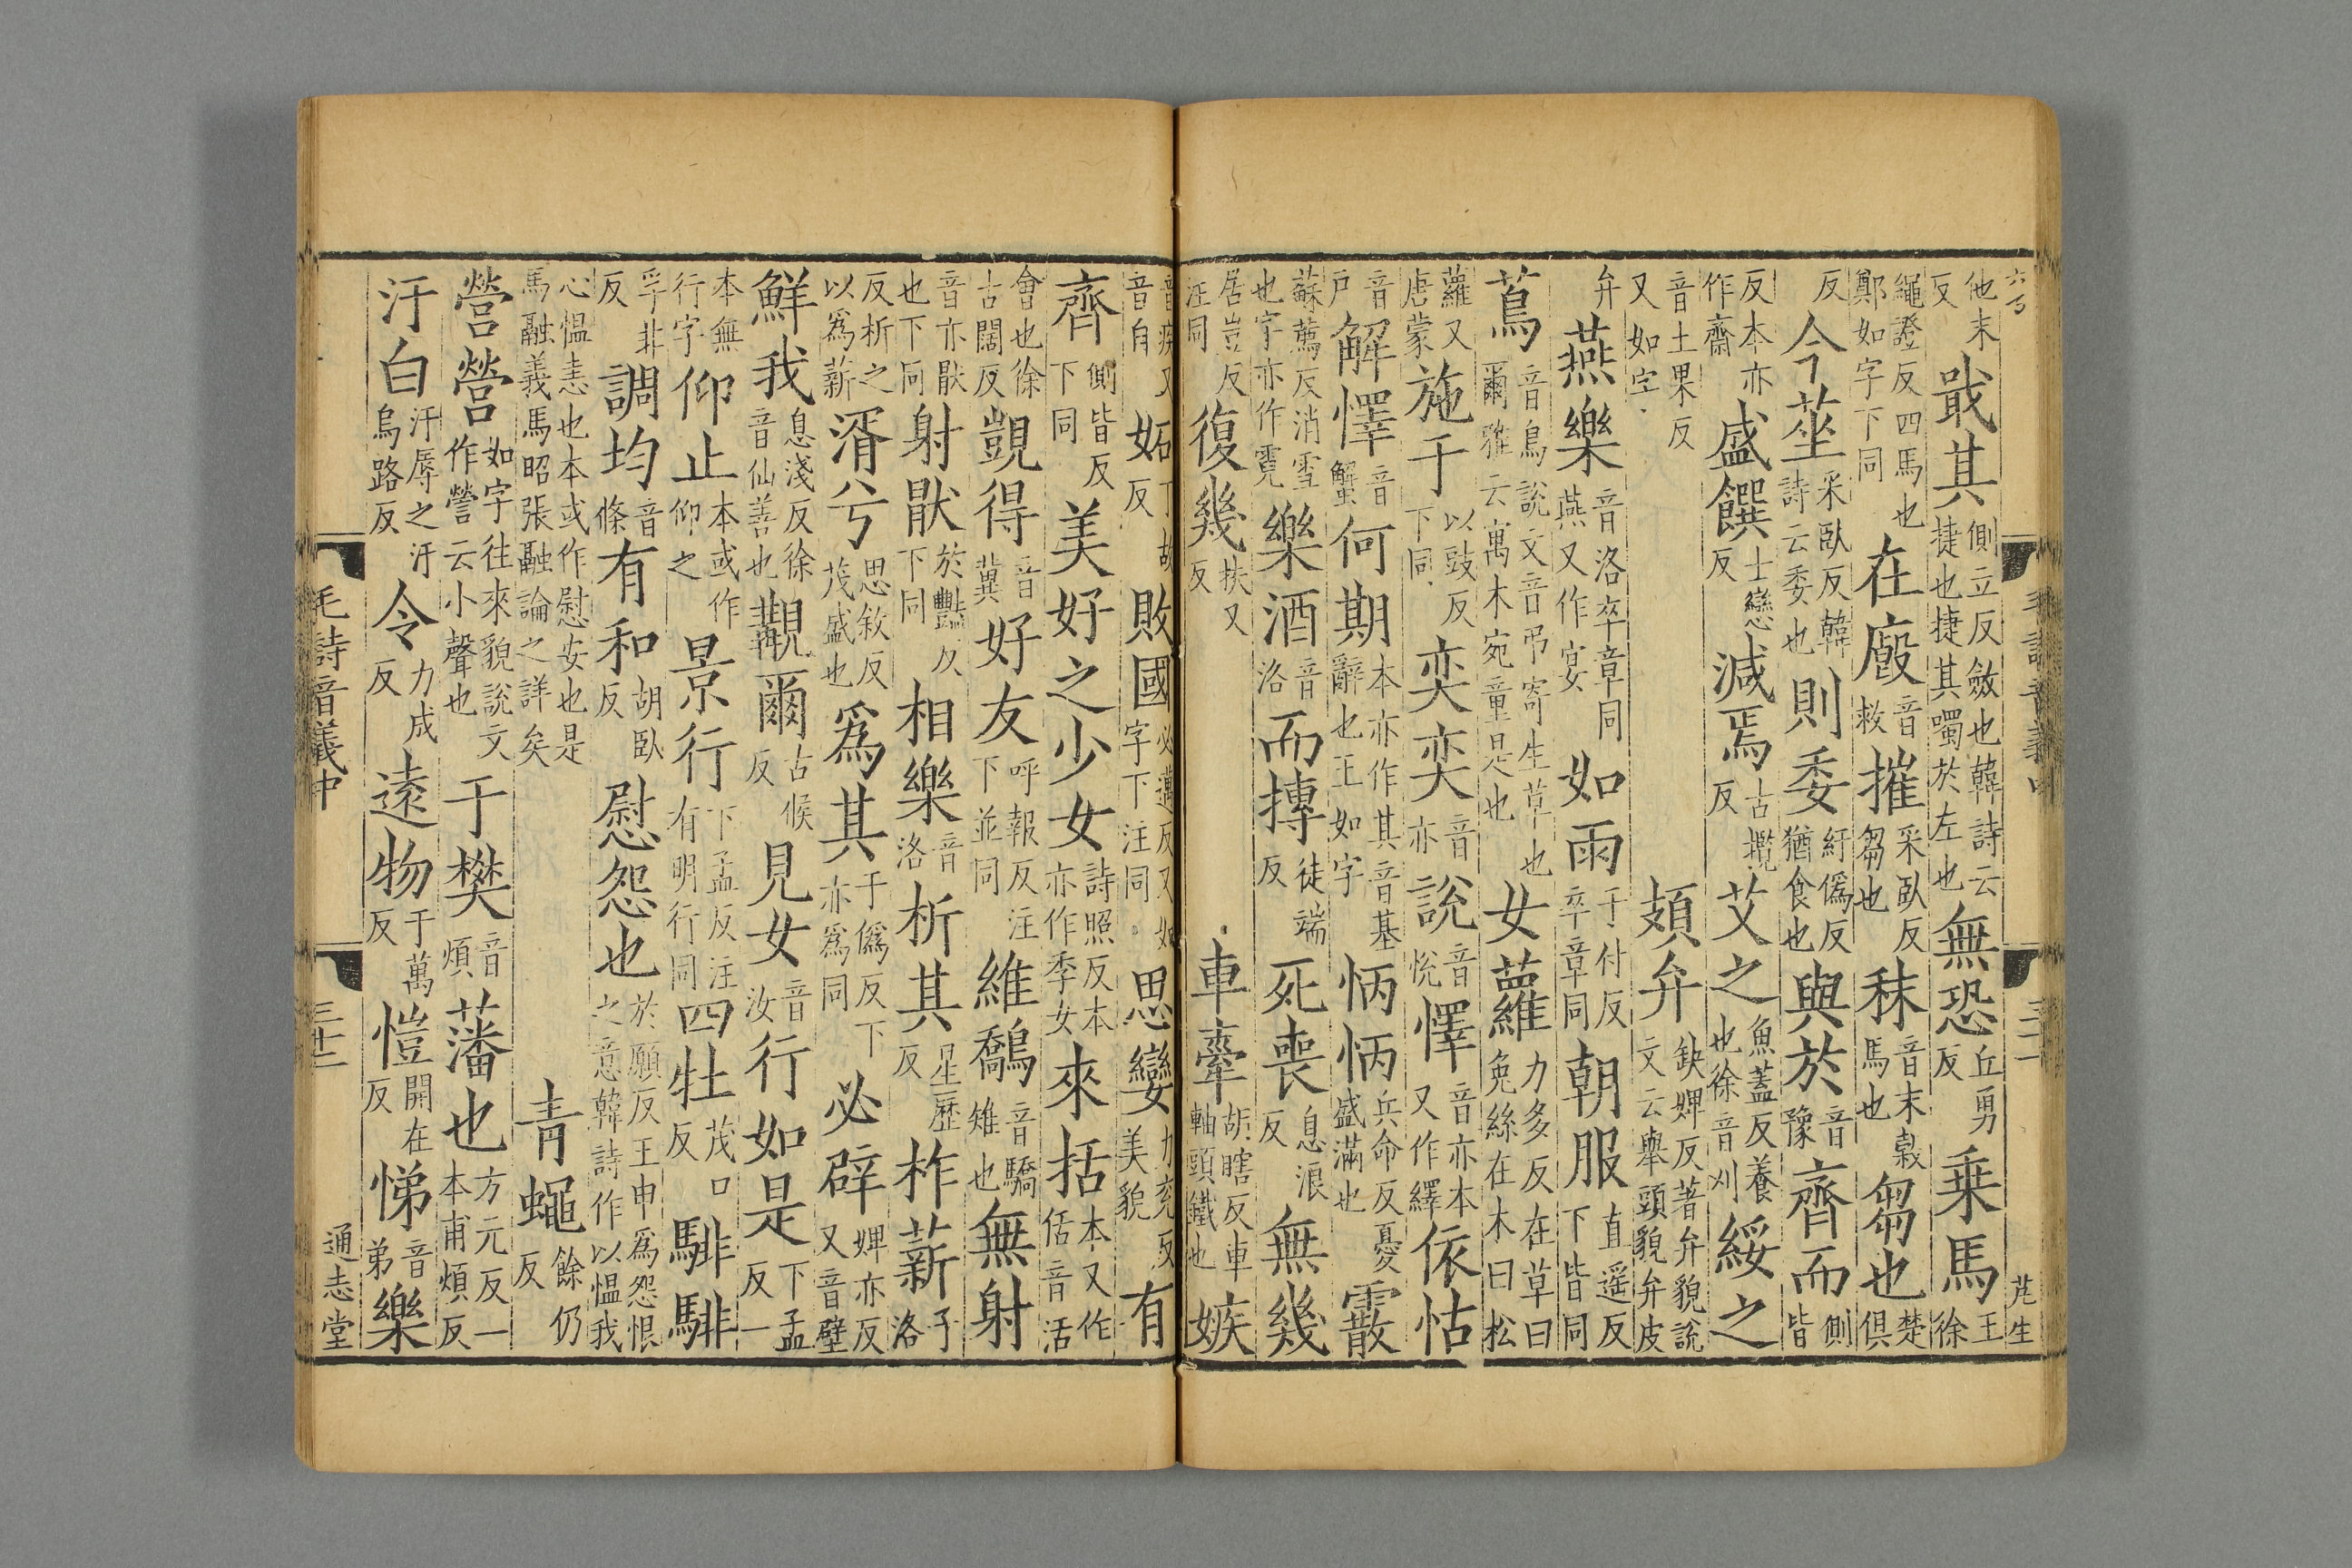 六百 毛詩音義中 三十一 芃生
他末反戢其側立反斂也韓詩云捷也捷其噣於左也無恐丘勇反乗馬王徐
繩證反四馬也鄭如字下同在廄音救摧采臥反芻也秣音末榖馬也芻也楚俱
反今莝采臥反韓詩云委也則委紆僞反猶食也與於音豫齊而側皆
反本亦作齋盛饌士戀反減焉古攬反艾之魚蓋反養也徐音刈綏之
音土果反又如字頍弁缺婢反著弁貌說文云舉頭貌弁皮
弁燕樂音洛卒章同燕又作宴如雨于付反卒章同朝服直遥反下皆同
蔦音鳥說文音吊寄生草也爾雅云寓木宛童是也女蘿力多反在草曰兔絲在木曰松
蘿又唐蒙施于以豉反下同奕奕音亦說音悅懌音亦本又作繹依怙
音戶解懌音蟹何期本亦作其音基辭也王如字怲怲兵命反憂盛滿也霰
蘇薦反消雪也字亦作霓樂酒音洛而摶徒端反死喪息浪反無幾
居豈反注同復幾扶又反車舝胡瞎反車軸頭鐵也嫉
音疾又音自妬丁故反敗國必邁反又如字下注同思孌力兖反美貌有
齊側皆反下同美好之少女詩照反本亦作季女來括本又作佸音活
會也徐古闊反覬得音冀好友呼報反注下並同維鷮音驕雉也無射
音亦猒也下同射猒於豔反下同相樂音洛析其星歴反柞薪子洛
反析之以爲薪湑兮思敘反茂盛也爲其于僞反下亦爲同必辟婢亦反又音壁
鮮我息淺反徐音仙善也覯爾古候反見女音汝行如是下孟反一
本無行字仰止本或作仰之景行下孟反注有明行同四牡茂口反騑騑
孚非反調均音條有和胡臥反慰怨也於願反王申爲怨恨之意韓詩作以愠我
心愠恚也本或作慰安也是馬融義馬昭張融論之詳矣青蠅餘仍反
營營如字往來貌說文作謍云小聲也于樊音煩藩也方元反一本甫煩反
汙白汙辱之汙烏路反令力成反遠物于萬反愷開在反悌音弟樂
毛詩音義中 三十二 通志堂